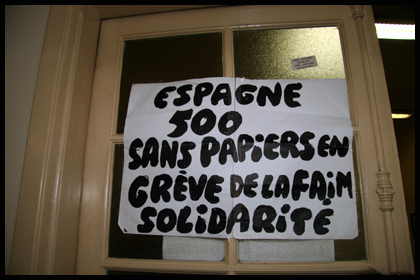 ESPAGNE
500
SANS PAPIERS EN
GRÈVE DE LA FAIM
SOLIDARITÉ